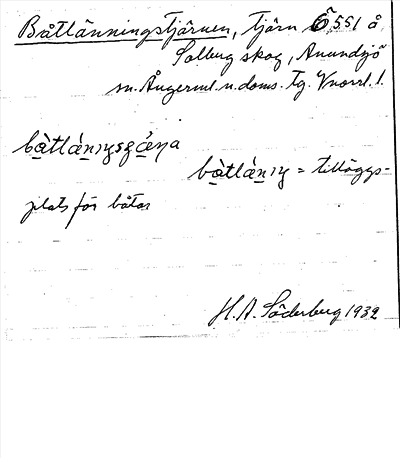 Båtlänningstjärnen, tjärn Ö 551 å
Solberg skog, Anundsjö
sn. Ångerml. n. doms. tg. Vnorrl. l.
båtlänning = tilläggs-
plats för båtar
H. A. Söderberg 1932